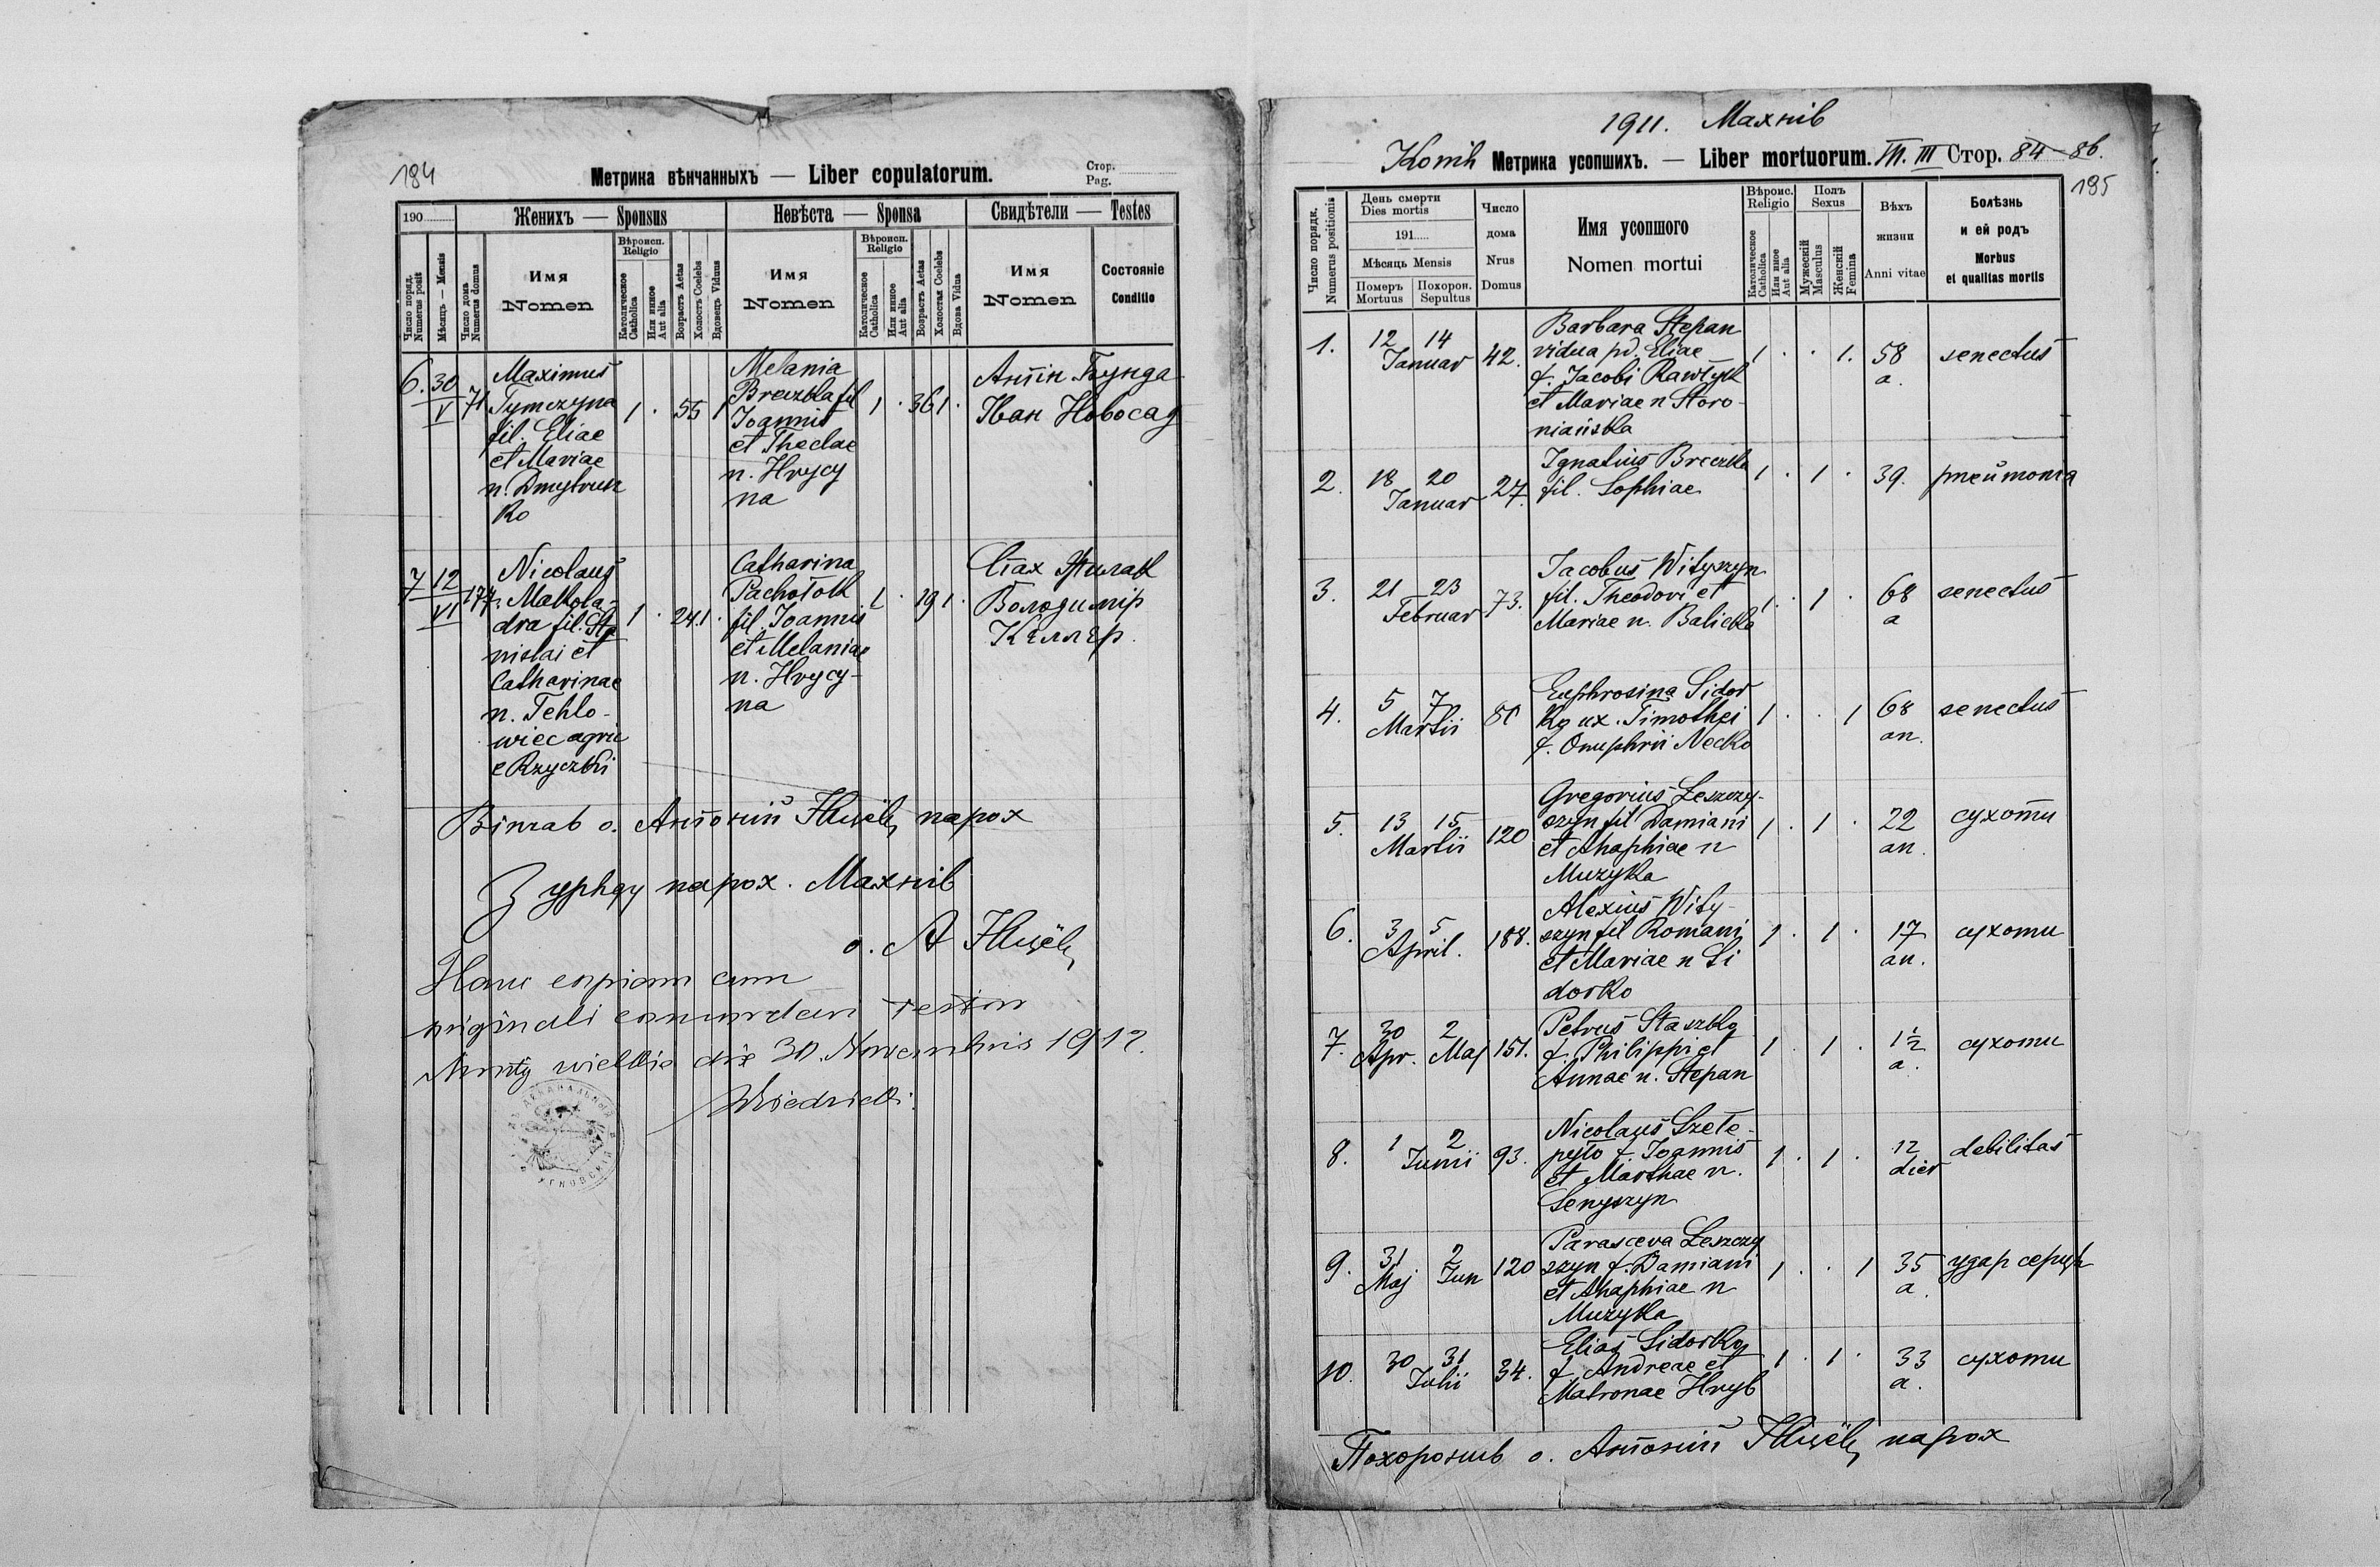 184
Метрика вѣнчанныхъ — Liber copulatorum.
Стор.
Pag.
190
Женихъ — Sponsus
Невѣста — Sponsa
Свидѣтели — Testes
Число поряд.
Numerus posit
Мѣсяцъ — Mensis
Число дома
Numerus domus
Имя
Nomen
Вѣроисп.
Religio
Католическое
Catholica
Или инное
Aut alia
Возрастъ Aetas
Холостъ Coelebs
Вдовецъ Viduus
Имя
Nomen
Вѣроисп.
Religio
Католическое
Catholica
Или инное
Aut alia
Возрастъ Aetas
Холостая Coelebs
Вдова Vidua
Имя
Nomen
Состояніе
Conditio
6. 30 V 71
Maximus
Tymczyna
fil. Eliae
et Mariae
n. Dmytrusz
ko
1 . 55 1
Melania
Breczka fil
Joannis
et Theclae
n. Hrycy
na
1 . 36 1 .
Антін Бунда
Іван Новосад
7 12 VI 177.
Nicolaus
Makola-
dra fil. Sta
nislai et
Catharinae
n. Tehlo-
wiec agric
e Rzyczki
1 . 24 1 .
Catharina
Pachotok
fil. Joannis
et Melaniae
n. Hrycy-
na
1 . 19 1 .
Стах
Володимір
Келлєр.
Вінчав о. Антоний парох
З уряду парох. Махнів
о. А
Hanc copiam cum
originali concordare testor
die 30. Novembris 1912.
1911. Махнів
Копія Метрика усопшихъ. — Liber mortuorum. Т. III Стор. 84 86.
195
Число порядк.
Numerus positionis
День смерти
Dies mortis
191
Мѣсяць Mensis
Померъ
Mortuus
Похорон.
Sepultus
Число
дома
Nrus
Domus
Имя усопшого
Nomen mortui
Вѣроис.
Religio
Католическое
Catholica
Или иное
Aut alia
Полъ
Sexus
Мужескій
Masculus
Женскій
Femina
Вѣхъ
жизни
Anni vitae
Болѣзнь
и ей родъ
Morbus
et qualitas mortis
1. 12 14 Januar 42.
Barbara Stepan
vidua pd. Eliae
f. Jacobi Rawłyk
et Mariae n Storo-
niańska
1 . . 1. 58 a. senectus
2. 18 20 Januar 27.
Ignatius Breczka
fil. Sophiae
1 . 1 . 39. pneumonia
3. 21 23 Februar 73.
Jacobus Wityszyn
fil. Theodori et
Mariae n. Balicka
1 . 1 . 68 a senectus
4. 5 7 Martii 81
Euphrosina Sidor
ko ux. Timothei
f. Onuphrii Necko
1 . . 1 68 an. senectus
5. 13 15 Martii 120
Gregorius Leszczy-
szyn fil Damiani
et Ahaphiae n
Muzyka
1 . 1 . 22 an. сухоти
6. 3 5 April. 188.
Alexius Wity-
szyn fil Romani
et Mariae n Si
dorko
1 . 1 . 17 an. сухоти
7. 30 Apr. 2 Maj 151.
Petrus Staszko
f. Philippi et
Annae n. Stepan
1 . 1 . 1½ a. сухоти
8. 1 2 Junii 93.
Nicolaus Szele-
pyło f. Joannis
et Marthae n.
Senyszyn
1 . 1 . 12 dier debilitas
9. 31 Maj 2 Jun 120
Parasceva Leszczy
szyn f. Damiani
et Ahaphiae n
Muzyka
1 . . 1 35 a. удар серця
10. 30 31 Julii 34.
Elias Sidorko
f. Andreae et
Matronae Hryb
1 . 1 . 33 a. сухоти
Похоронив о. Антоний парох